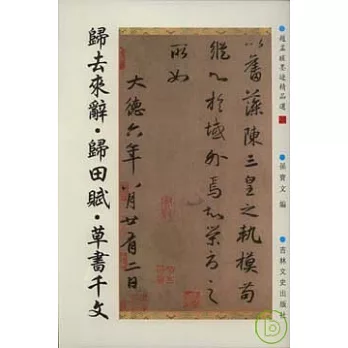 趙孟頫墨迹精品選
孫寶文 編
吉林文史出版社
以舊藻陳三皇之軌模苟
縱心於域外焉知榮辱之
所如
大德六年八月廿有二日
歸去來辭·歸田賦·草書千文